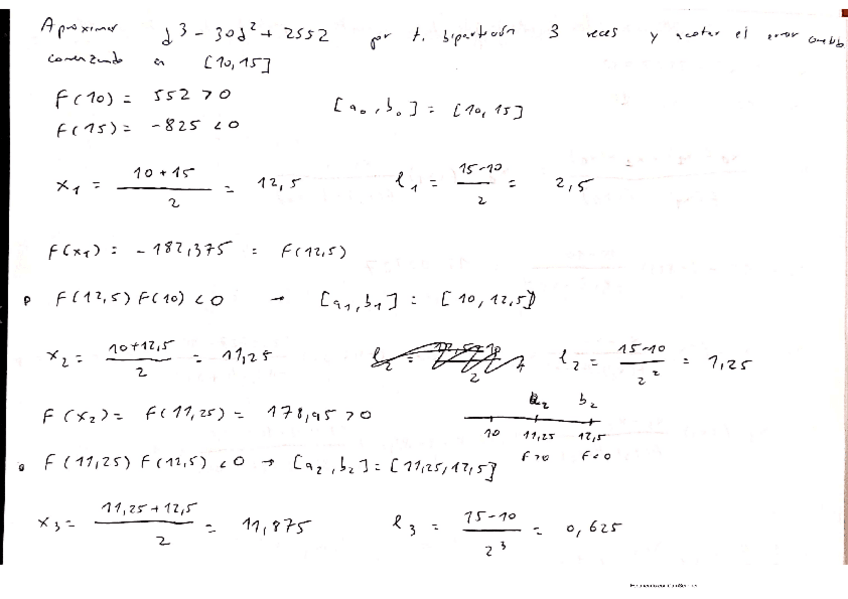 Aproximar d³ - 30d² + 2552 por t. bipartición 3 veces y acotar el error
comenzando en [10,15]
F(10) = 552 > 0
[a₀, b₀] = [10, 15]
F(15) = -825 < 0
x₁ = (10 + 15)/2 = 12,5 l₁ = (15-10)/2 = 2,5
F(x₁) = -182,375 = F(12,5)
F(12,5) F(10) < 0 → [a₁, b₁] = [10, 12,5]
x₂ = (10+12,5)/2 = 11,25 l₂ = (15-10)/2² = 1,25
a₂ b₂
F(x₂) = F(11,25) = 178,95 > 0
10 11,25 12,5
F>0 F<0
F(11,25) F(12,5) < 0 → [a₂, b₂] = [11,25, 12,5]
x₃ = (11,25 + 12,5)/2 = 11,875 l₃ = (15-10)/2³ = 0,625